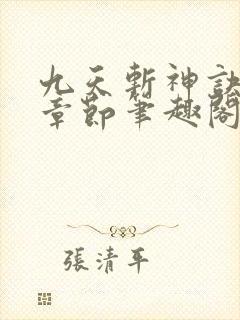 九天斬神訣
章節筆趣閣
張清平